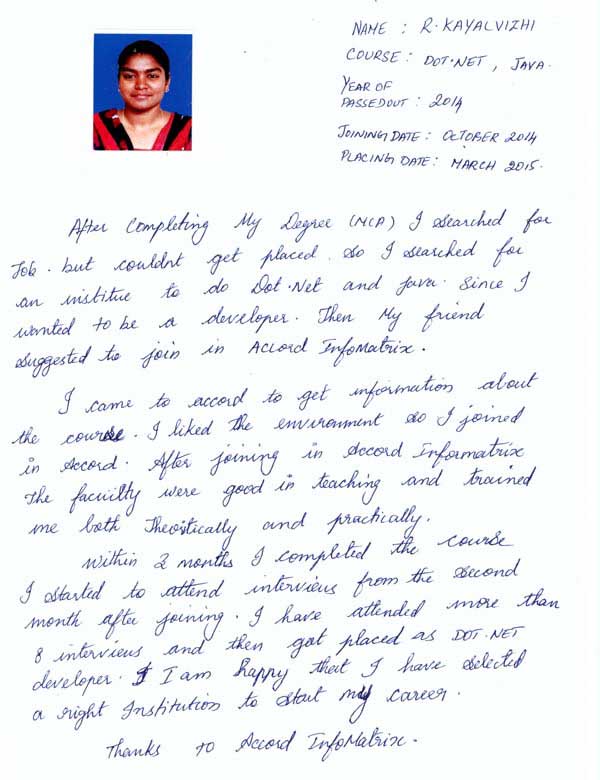 NAME : R. KAYALVIZHI
COURSE : DOT.NET, JAVA.
YEAR OF
PASSEDOUT : 2014
JOINING DATE : OCTOBER 2014
PLACING DATE : MARCH 2015.
After Completing My Degree (MCA) I searched for
Job. but couldnt get placed. So I searched for
an institue to do Dot.Net and Java. Since I
wanted to be a developer. Then My friend
suggested to join in Accord InfoMatrix.
I came to accord to get information about
the course. I liked the environment so I joined
in Accord. After joining in Accord Informatrix
The facuilty were good in teaching and trained
me both Theoritically and practically.
Within 2 months I completed the course
I started to attend interviews from the second
month after joining. I have attended more than
8 interviews and then got placed as DOT.NET
developer. I am happy that I have selected
a right Institution to start my career.
Thanks to Accord InfoMatrix.